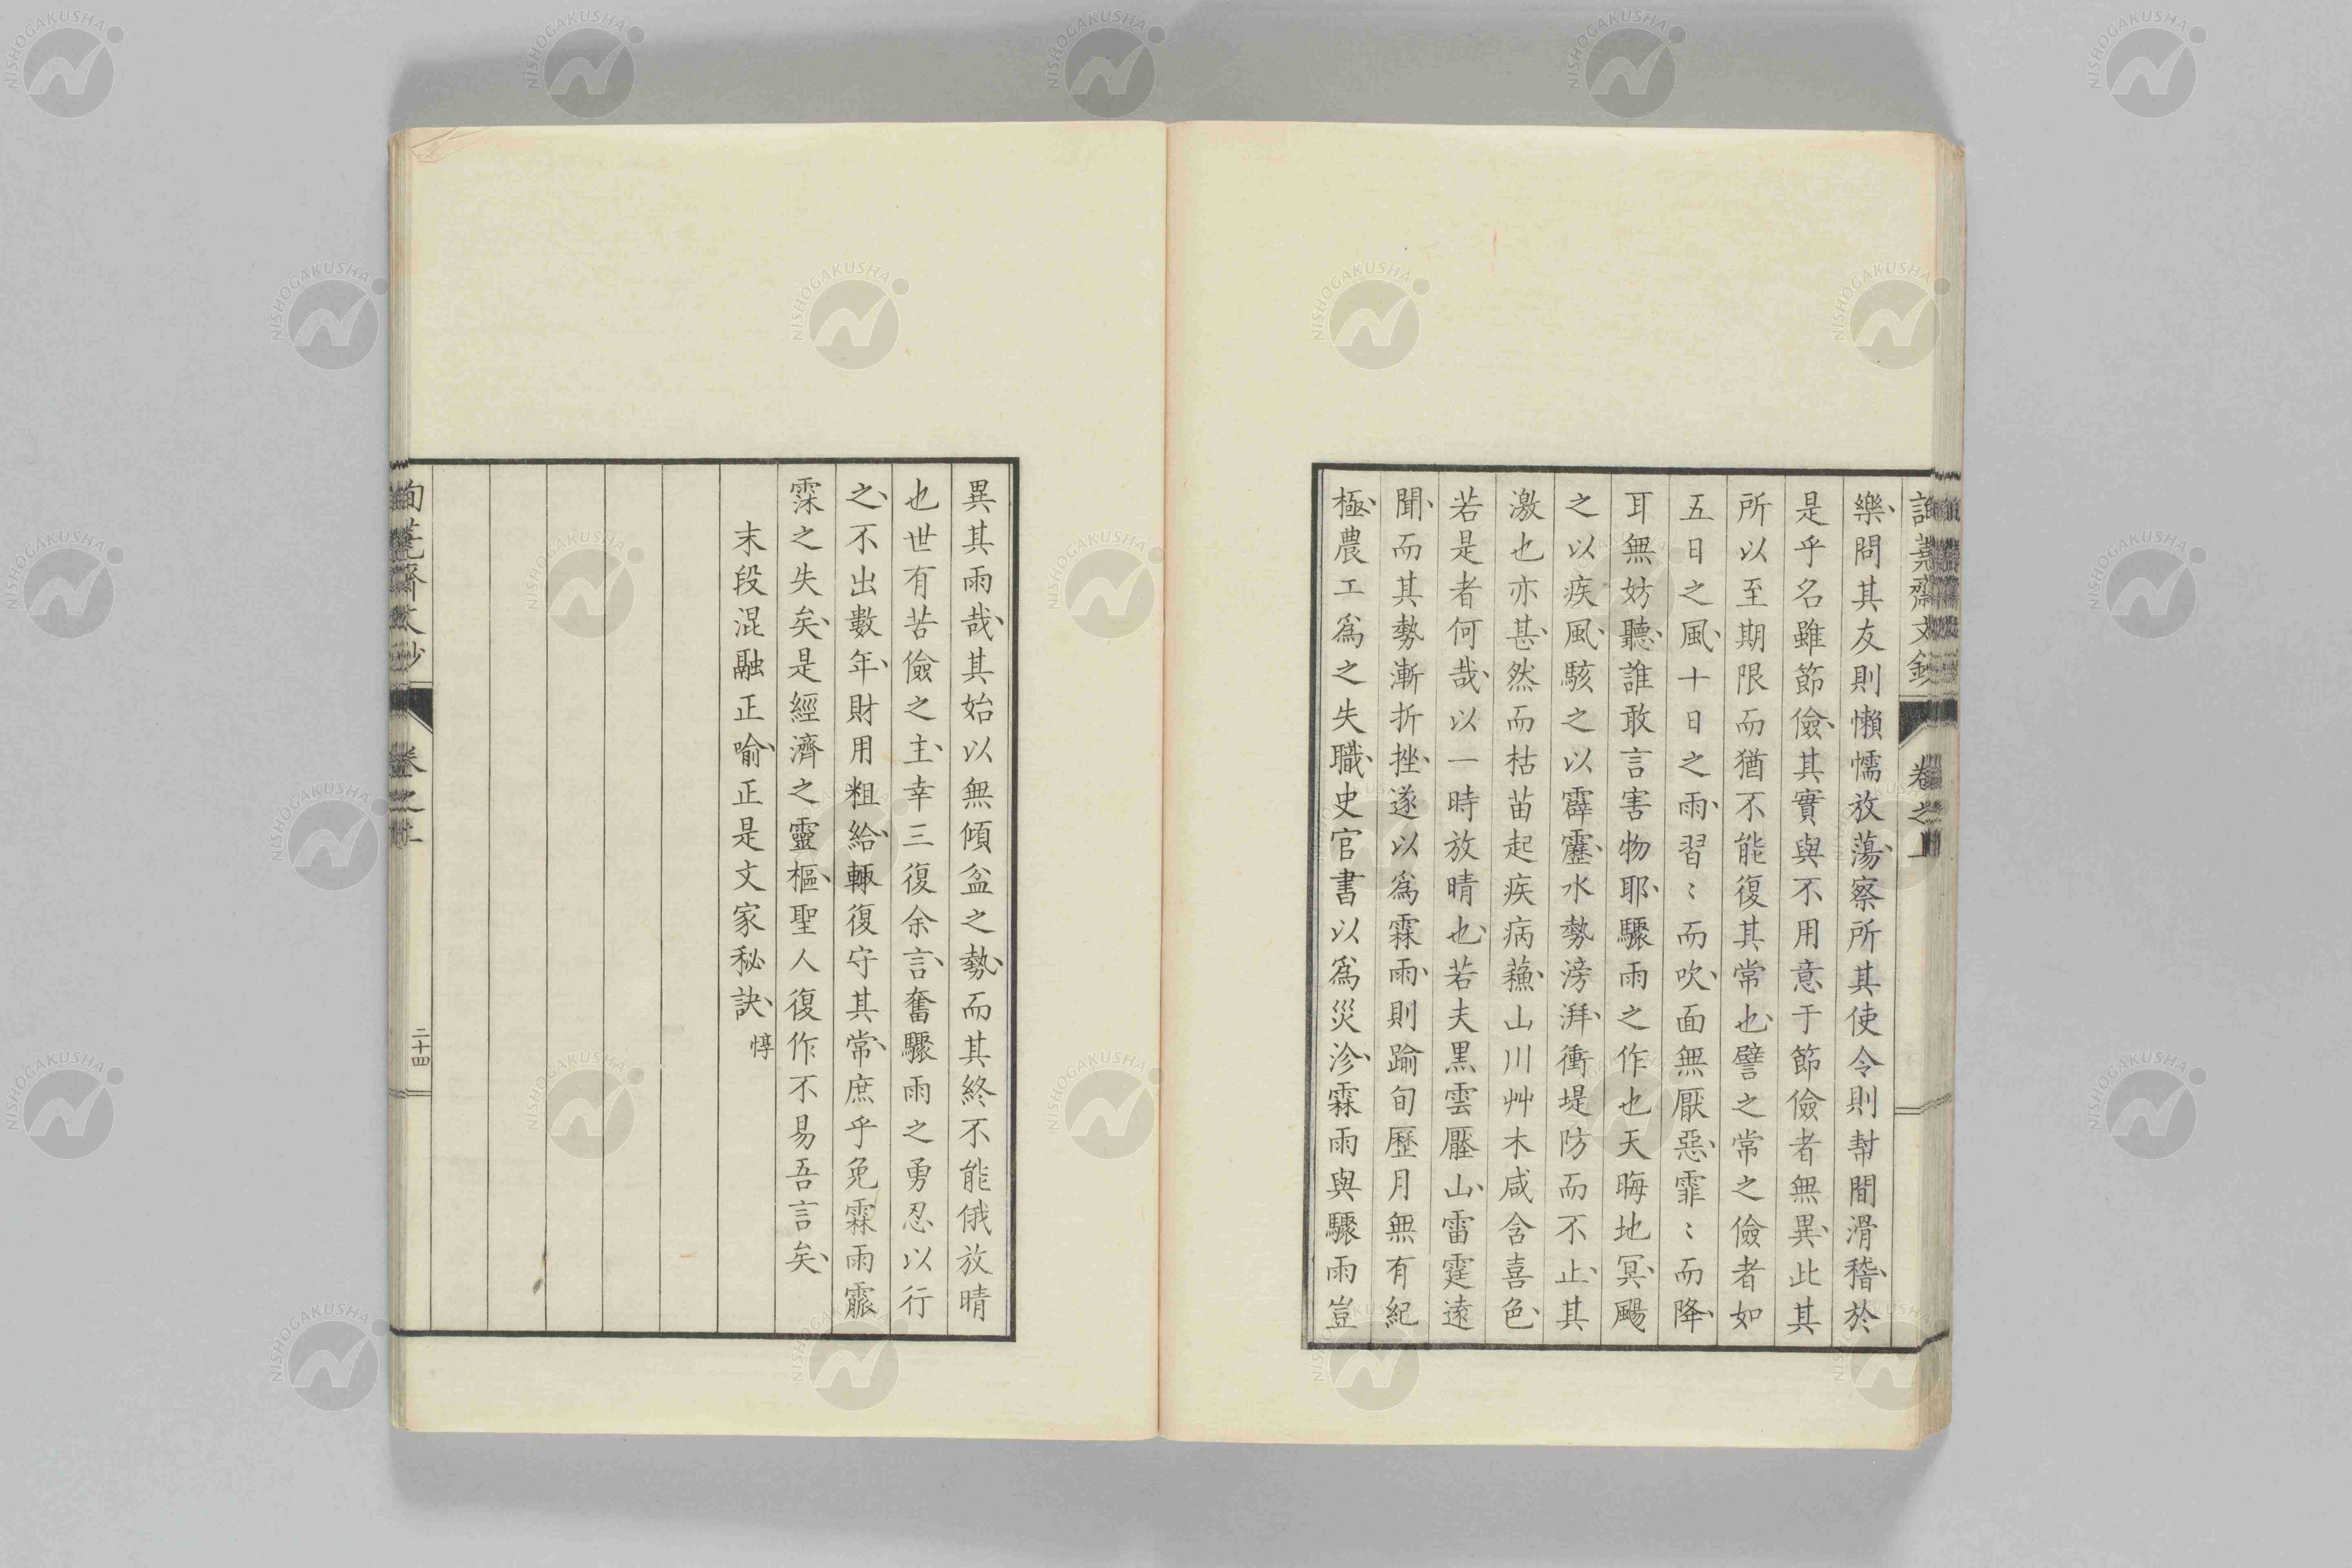 樂、問其友則懶懦放蕩、察所其使令則幇間滑稽、於
是乎名雖節儉、其實與不用意于節儉者無異、此其
所以至期限而猶不能復其常也、譬之常之儉者如
五日之風、十日之雨、習〻而吹、面無厭惡、霏〻而降、
耳無妨聽、誰敢言害物耶、驟雨之作也天晦地冥、颺
之以疾風、駭之以霹靂、水勢滂湃、衝堤防而不止、其
激也亦甚、然而枯苗起疾病蘓、山川艸木咸含喜色、
若是者何哉、以一時放晴也、若夫黒雲壓山、雷霆遠
聞、而其勢漸折挫、遂以爲霖雨、則踰旬歷月無有紀
極、農工爲之失職、史官書以爲災沴、霖雨與驟雨豈
異其雨哉、其始以無傾盆之勢、而其終不能俄放晴
也世有苦儉之主、幸三復余言、奮驟雨之勇忍以行
之、不出數年、財用粗給、輙復守其常、庶乎免霖雨霢
霂之失矣、是經濟之靈樞、聖人復作不易吾言矣、
末段混融正喻、正是文家秘訣、惇
二十四
NISHOGAKUSHA